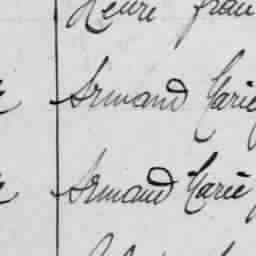 Henri Fran
Armand Marie
Armand Marie